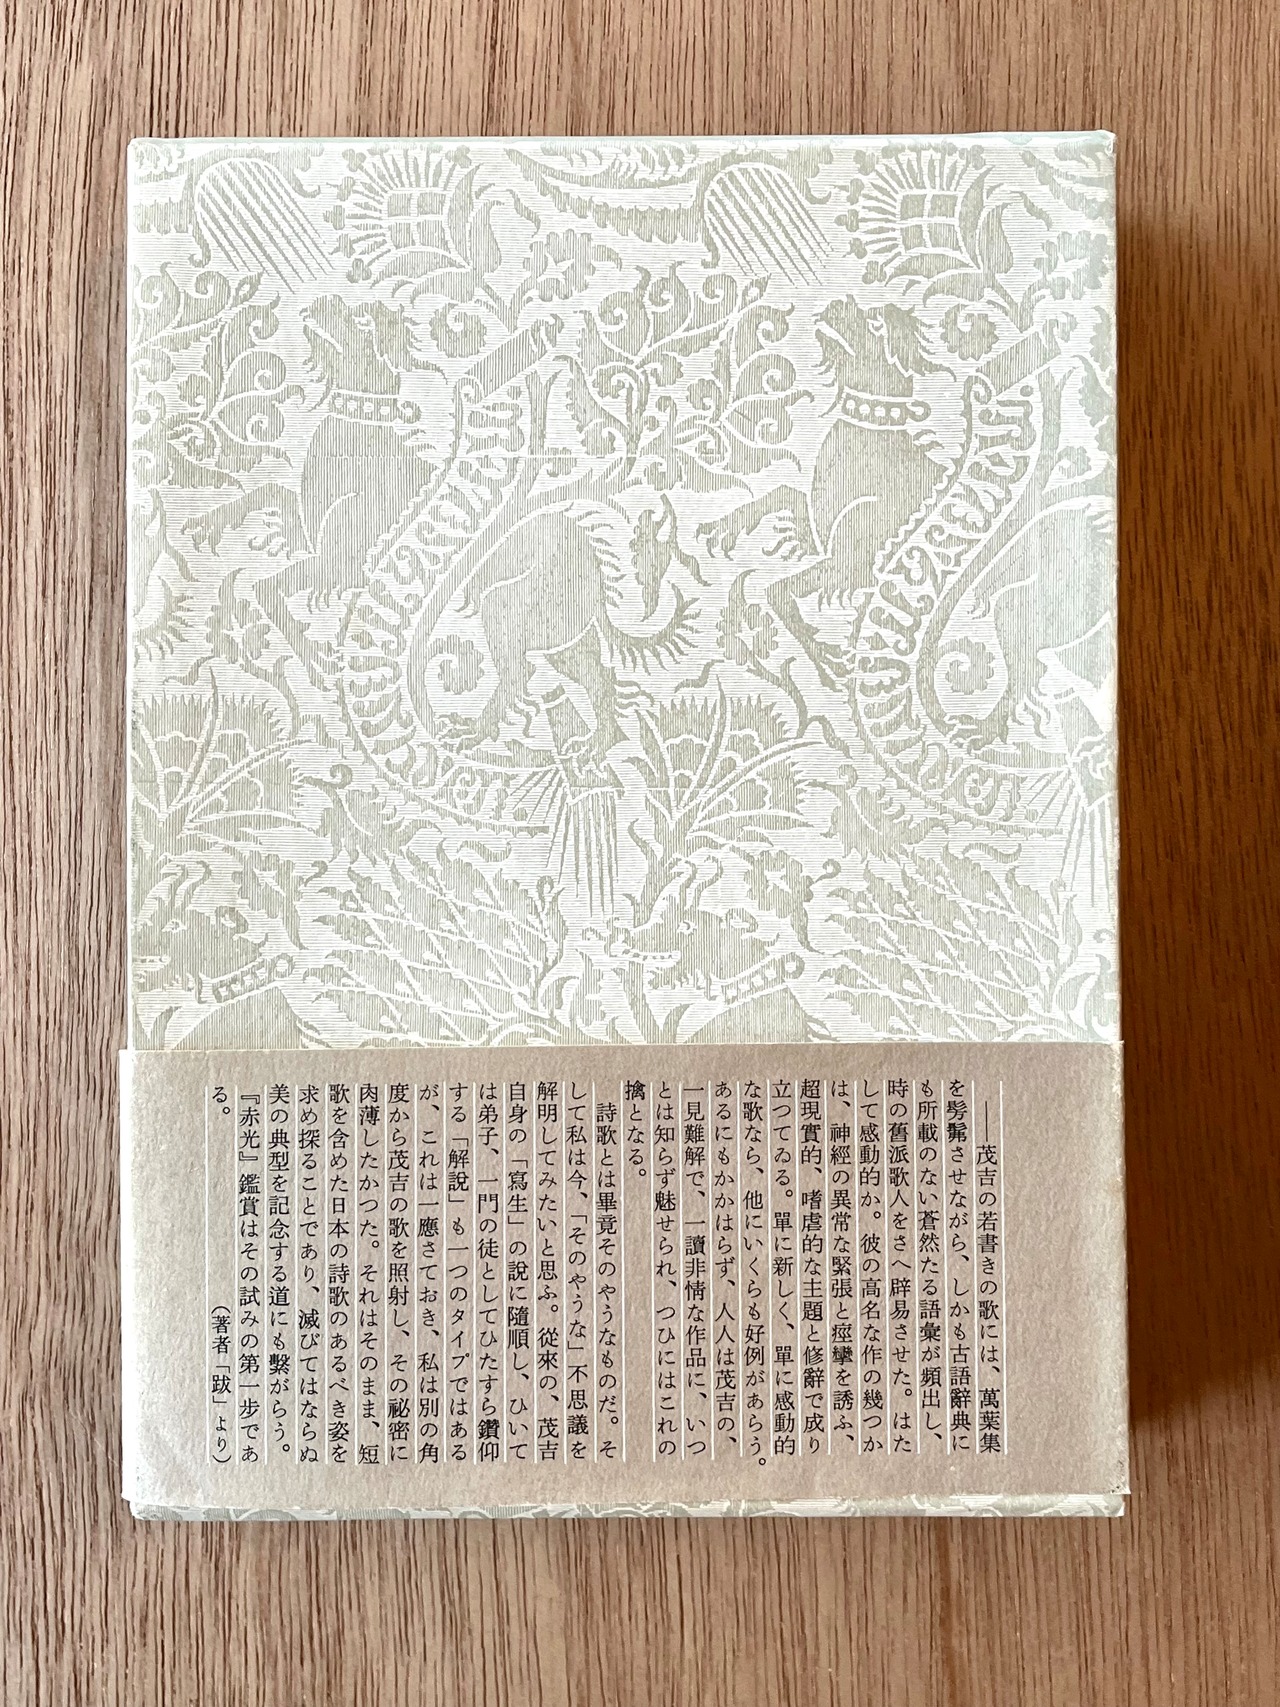 ――茂吉の若書きの歌には、萬葉集
を髣髴させながら、しかも古語辭典に
も所載のない蒼然たる語彙が頻出し、
時の舊派歌人をさへ辟易させた。はた
して感動的か。彼の高名な作の幾つか
は、神經の異常な緊張と痙攣を誘ふ、
超現實的、嗜虐的な主題と修辭で成り
立つてゐる。單に新しく、單に感動的
な歌なら、他にいくらも好例があらう。
あるにもかかはらず、人人は茂吉の、
一見難解で、一讀非情な作品に、いつ
とは知らず魅せられ、つひにはこれの
擒となる。
詩歌とは畢竟そのやうなものだ。そ
して私は今、「そのやうな」不思議を
解明してみたいと思ふ。從來の、茂吉
自身の「寫生」の說に隨順し、ひいて
は弟子、一門の徒としてひたすら鑽仰
する「解說」も一つのタイプではある
が、これは一應さておき、私は別の角
度から茂吉の歌を照射し、その祕密に
肉薄したかつた。それはそのまま、短
歌を含めた日本の詩歌のあるべき姿を
求め探ることであり、滅びてはならぬ
美の典型を記念する道にも繫がらう。
『赤光』鑑賞はその試みの第一步であ
る。
（著者「跋」より）